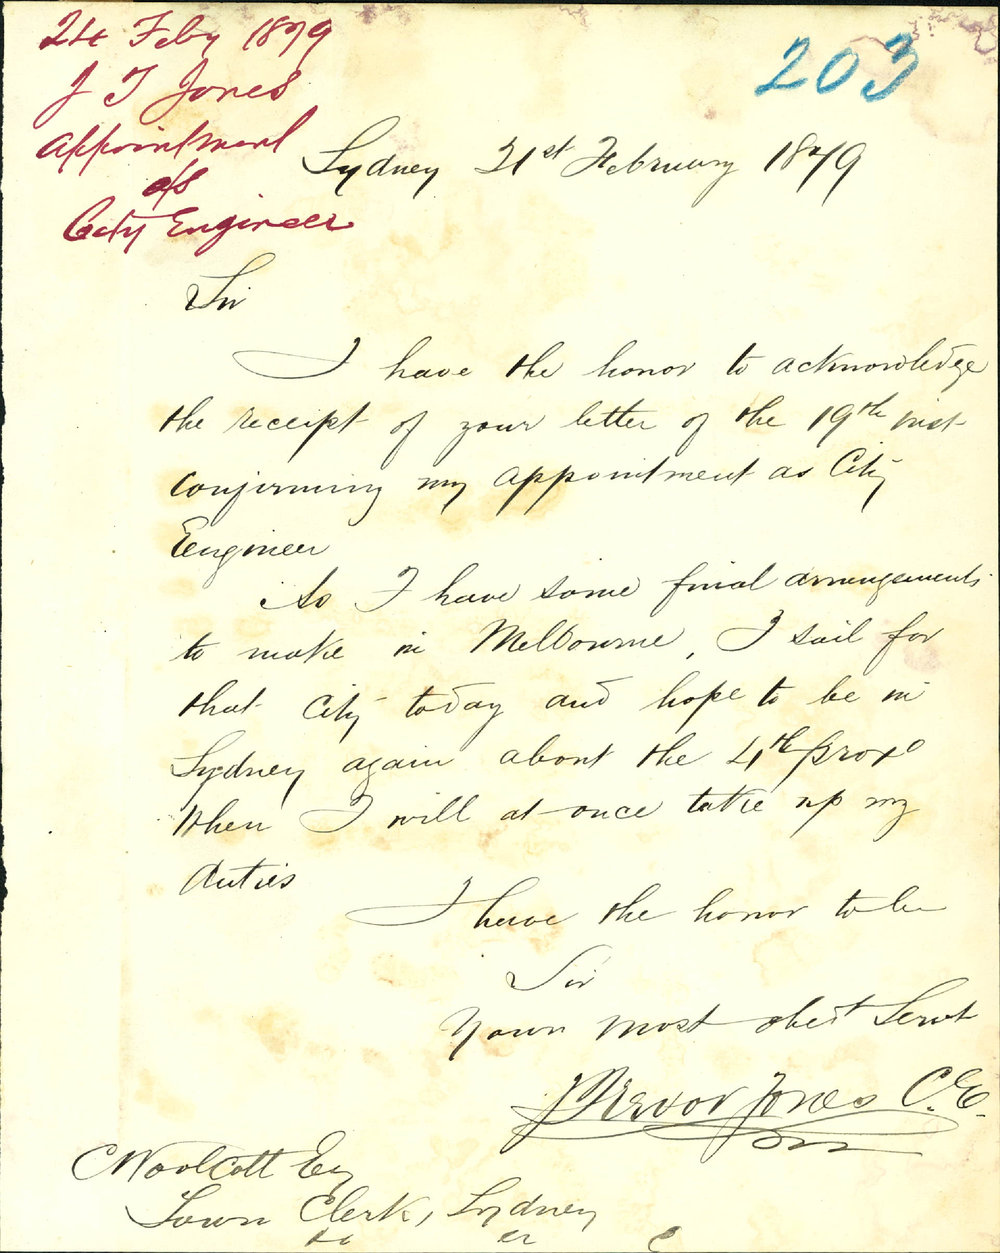 24 Feby 1879
J T Jones
Appointment
as
City Engineer
203
Sydney 21st February 1879
Sir
I have the honor to acknowledge
the receipt of your letter of the 19th inst
confirming my appointment as City
Engineer
As I have some final arrangements
to make in Melbourne, I sail for
that City today and hope to be in
Sydney again about the 4th proxo
when I will at once take up my
duties
I have the honor to be
Sir
Your most obedt Servt
J Trevor Jones C.E.
C Woolcott Esq
Town Clerk, Sydney